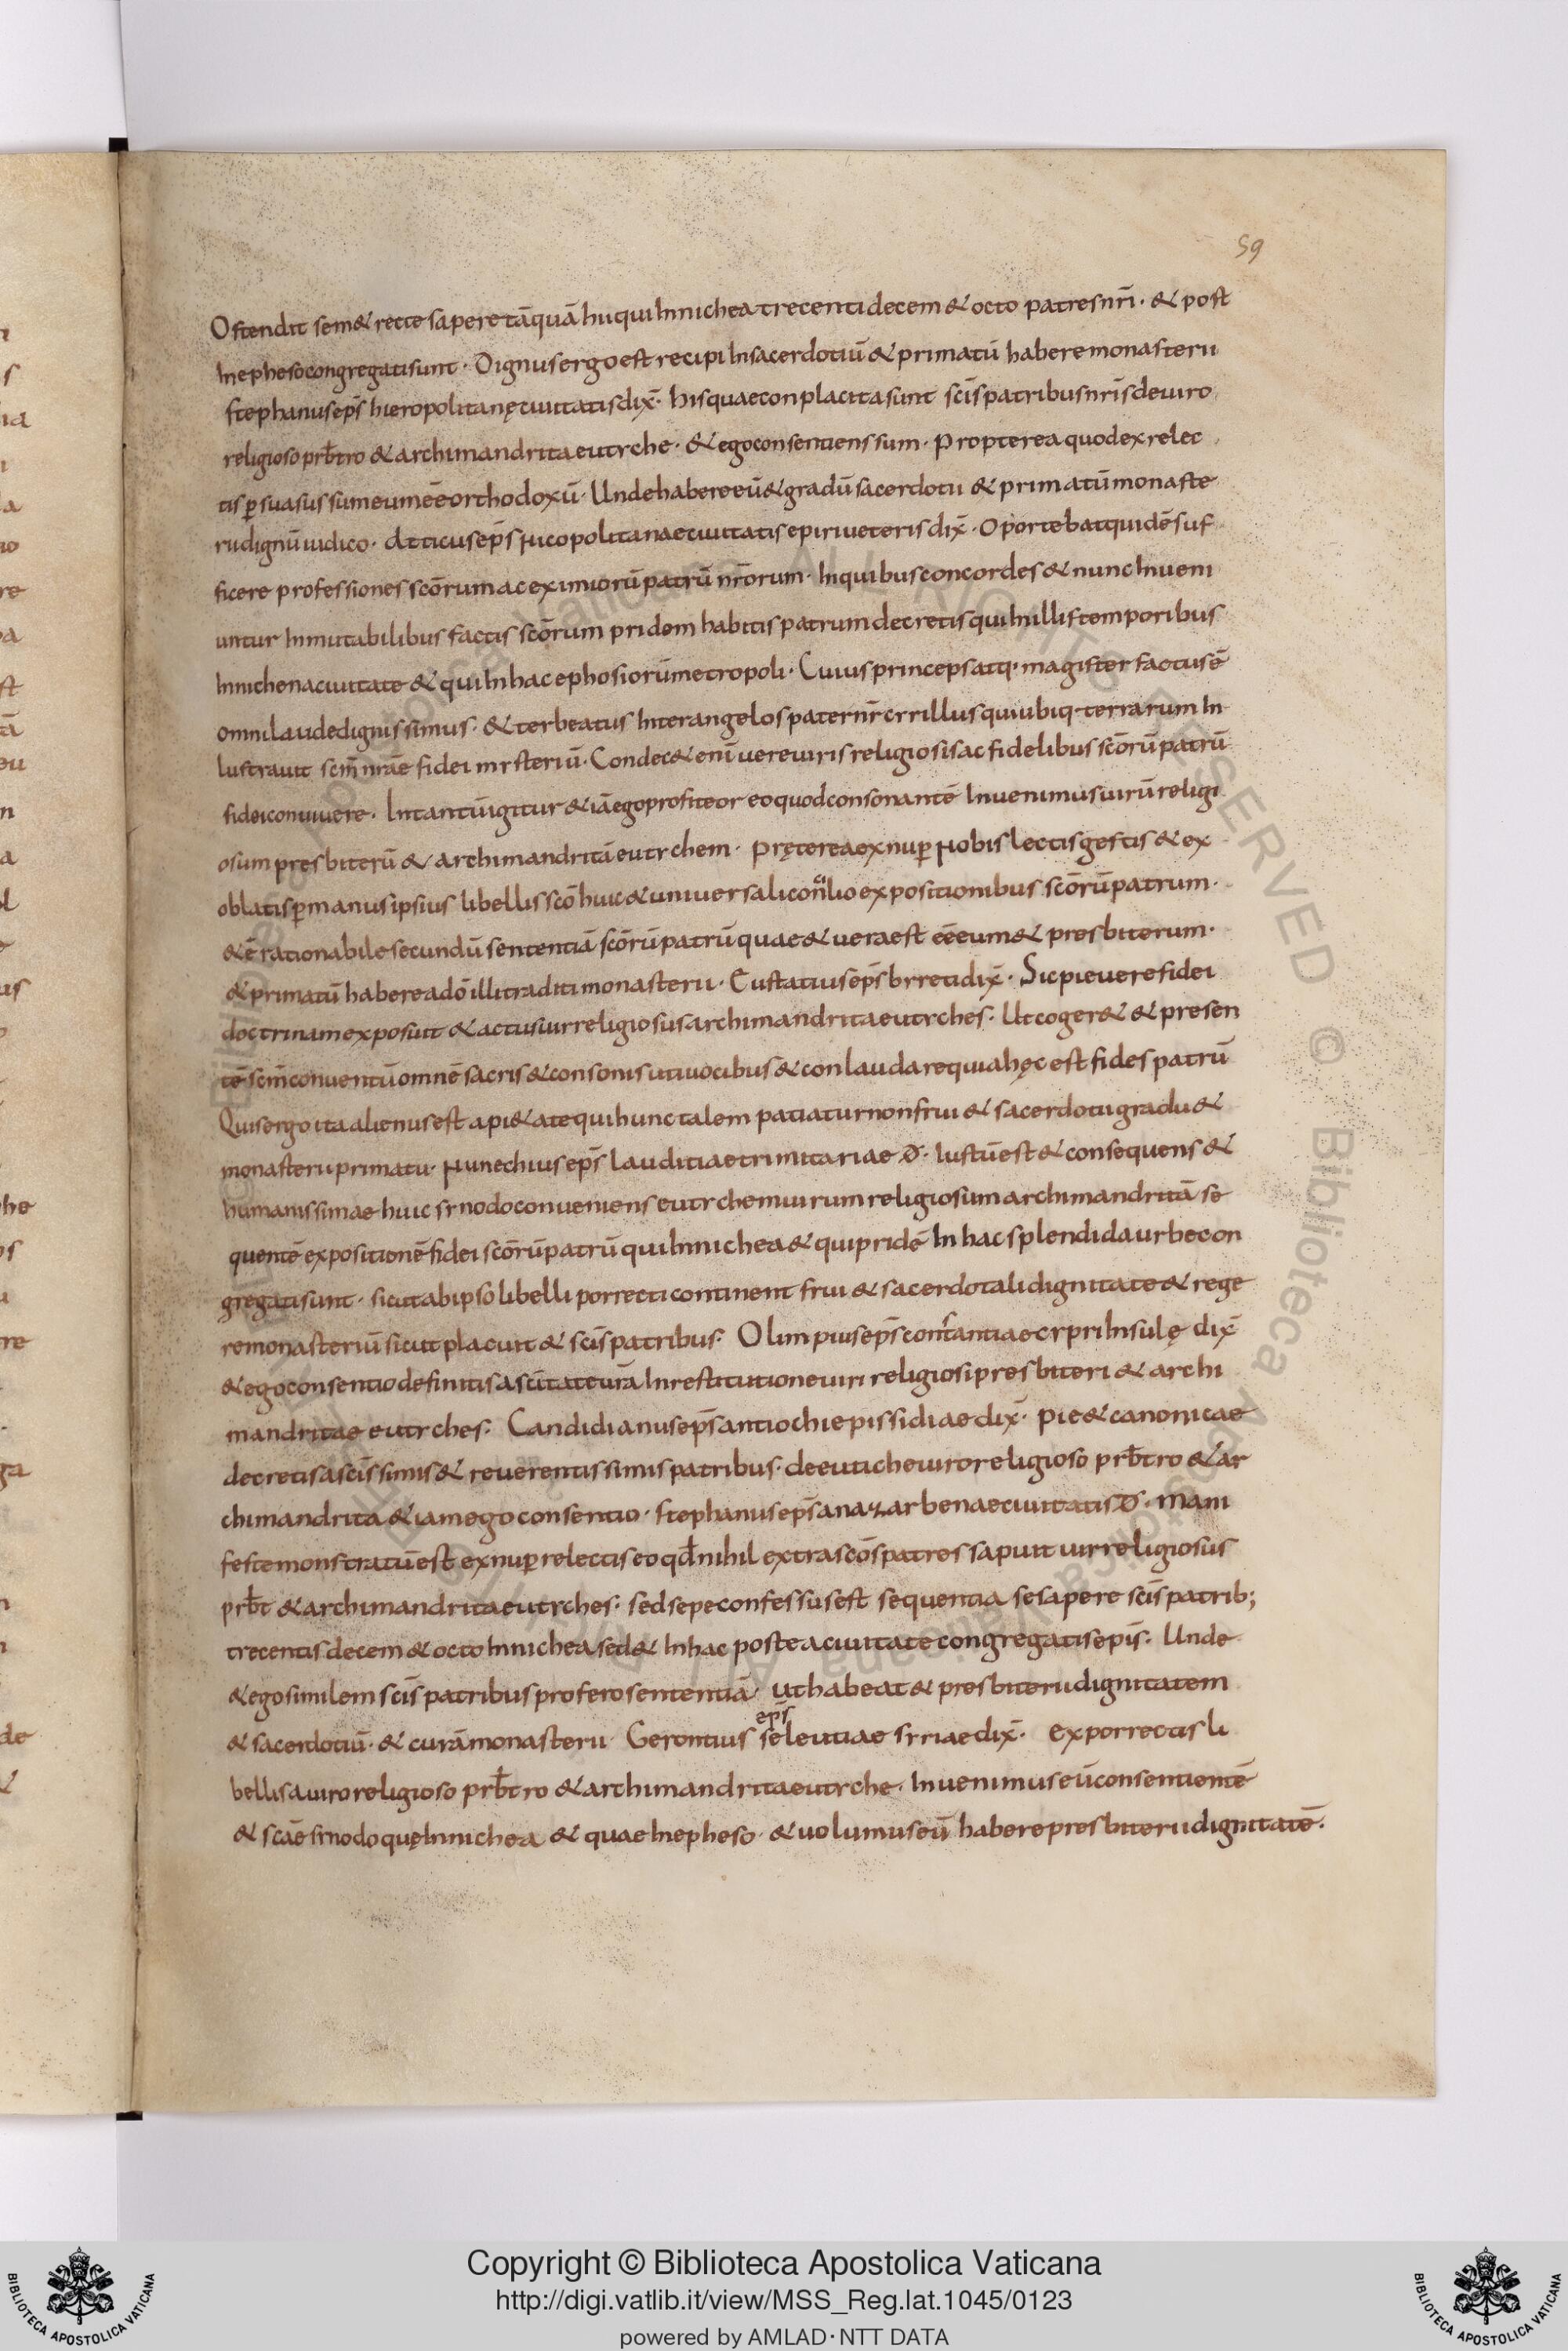 59
Ostendit sem& recte sapere tāquā hii qui Innichea trecenti decem & octo patres nr̄i · & post
Inepheso congregati sunt · Dignus ergo est recipi Insacerdotiū & primatū habere monasterii
stephanus ep̄s hieropolitanę ciuitatis dix̄ · his quae conplacita sunt sc̄is patribus nr̄is de uiro
religioso prb̄tro & archimandrita eutyche · & ego consentiens sum · propterea quod ex relec
tis p̄suasus sum eum ēē orthodoxū · Unde habere eū & gradū sacerdotii & primatū monaste
rii dignū iudico · Atticus ep̄s Nicopolitanae ciuitatis epiri ueteris dix̄ · Oportebat quidē suf
ficere professiones sc̄orum ac eximiorū patrū nr̄orum · Inquibus concordes & nunc Inueni
untur Inmutabilibus factis sc̄orum pridem habitis patrum decretis qui Inillis temporibus
Innichena ciuitate & qui Inhac ephosiorū metropoli · Cuius princeps atq· magister factus ē
omni laude dignissimus · & ter beatus Inter angelos pater nr̄ cyrillus qui ubiq· terrarum In
lustrauit sc̄m nr̄ae fidei mysteriū · Condec& enī uere uiris religiosis ac fidelibus sc̄orū patrū
fidei conuiuere · Intantū igitur & iā ego profiteor eo quod consonantē Inuenimus uirū religi
osum presbiterū & archimandritā eutychem · pręterea ex nup̄ Nobis lectis gestis & ex
oblatis p̄ manus ipsius libellis sc̄o huic & uniuersali concilio expositionibus sc̄orū patrum ·
& ē rationabile secundū sententiā sc̄orū patrū quae & uera est ēē eum & presbiterum ·
& primatū habere ad ō illi traditi monasterii · Eustatius ep̄s byreti dix̄ · Sic pie uere fidei
doctrinam exposuit & actus uir religiosus archimandrita eutyches · Ut coger& & presen
tē sc̄m conuentū omnē sacris & consonis uti uocibus & conlaudare quia hęc est fides patrū
Quis ergo ita alienus est a pi&ate qui hunc talem patiatur non frui & sacerdotii gradu &
monasterii primatu · Nunechius ep̄s lauditiae trimitariae d̄ · Iustū est & consequens &
humanissimae huic synodo conueniens eutychem uirum religiosum archimandritā se
quentē expositionē fidei sc̄orū patrū qui Innichea & qui pridē In hac splendida urbe con
gregati sunt · sicut ab ipso libelli porrecti continent frui & sacerdotali dignitate & rege
re monasteriū sicut placuit & sc̄is patribus · Olimpius ep̄s constantiae cypri Insulę dix̄
& ego consentio definitis a sc̄itate ur̄a Inrestitutione uiri religiosi presbiteri & archi
mandritae eutyches · Candidianus ep̄s antiochie pissidiae dix̄ · pie & canonicae
decretis a sc̄issimis & reuerentissimis patribus · de eutiche uiro religioso prb̄tro & ar
chimandrita & iam ego consentio · stephanus ep̄s anazarbenae ciuitatis d̄ · Mani
feste monstratū est ex nup̄ relectis eo qd̄ nihil extra sc̄os patres sapuit uir religiosus
prb̄t & archimandrita eutyches · sed sepe confessus est sequentia se sapere sc̄is patrib;
trecentis decem & octo Innichea sed & Inhac postea ciuitate congregatis ep̄is · Unde
& ego similem sc̄is patribus profero sententiā · ut habeat & presbiterii dignitatem
& sacerdotiū · & curā monasterii · Gerontius ep̄s seleutiae syriae dix̄ · ex porrectis li
bellis a uiro religioso prb̄tro & archimandrita eutyche · Inuenimus eū consentientē
& sc̄ae synodo quę Innichea & quae Inepheso · & uolumus eū habere presbiterii dignitatē ·
Copyright © Biblioteca Apostolica Vaticana
http://digi.vatlib.it/view/MSS_Reg.lat.1045/0123
powered by AMLAD·NTT DATA